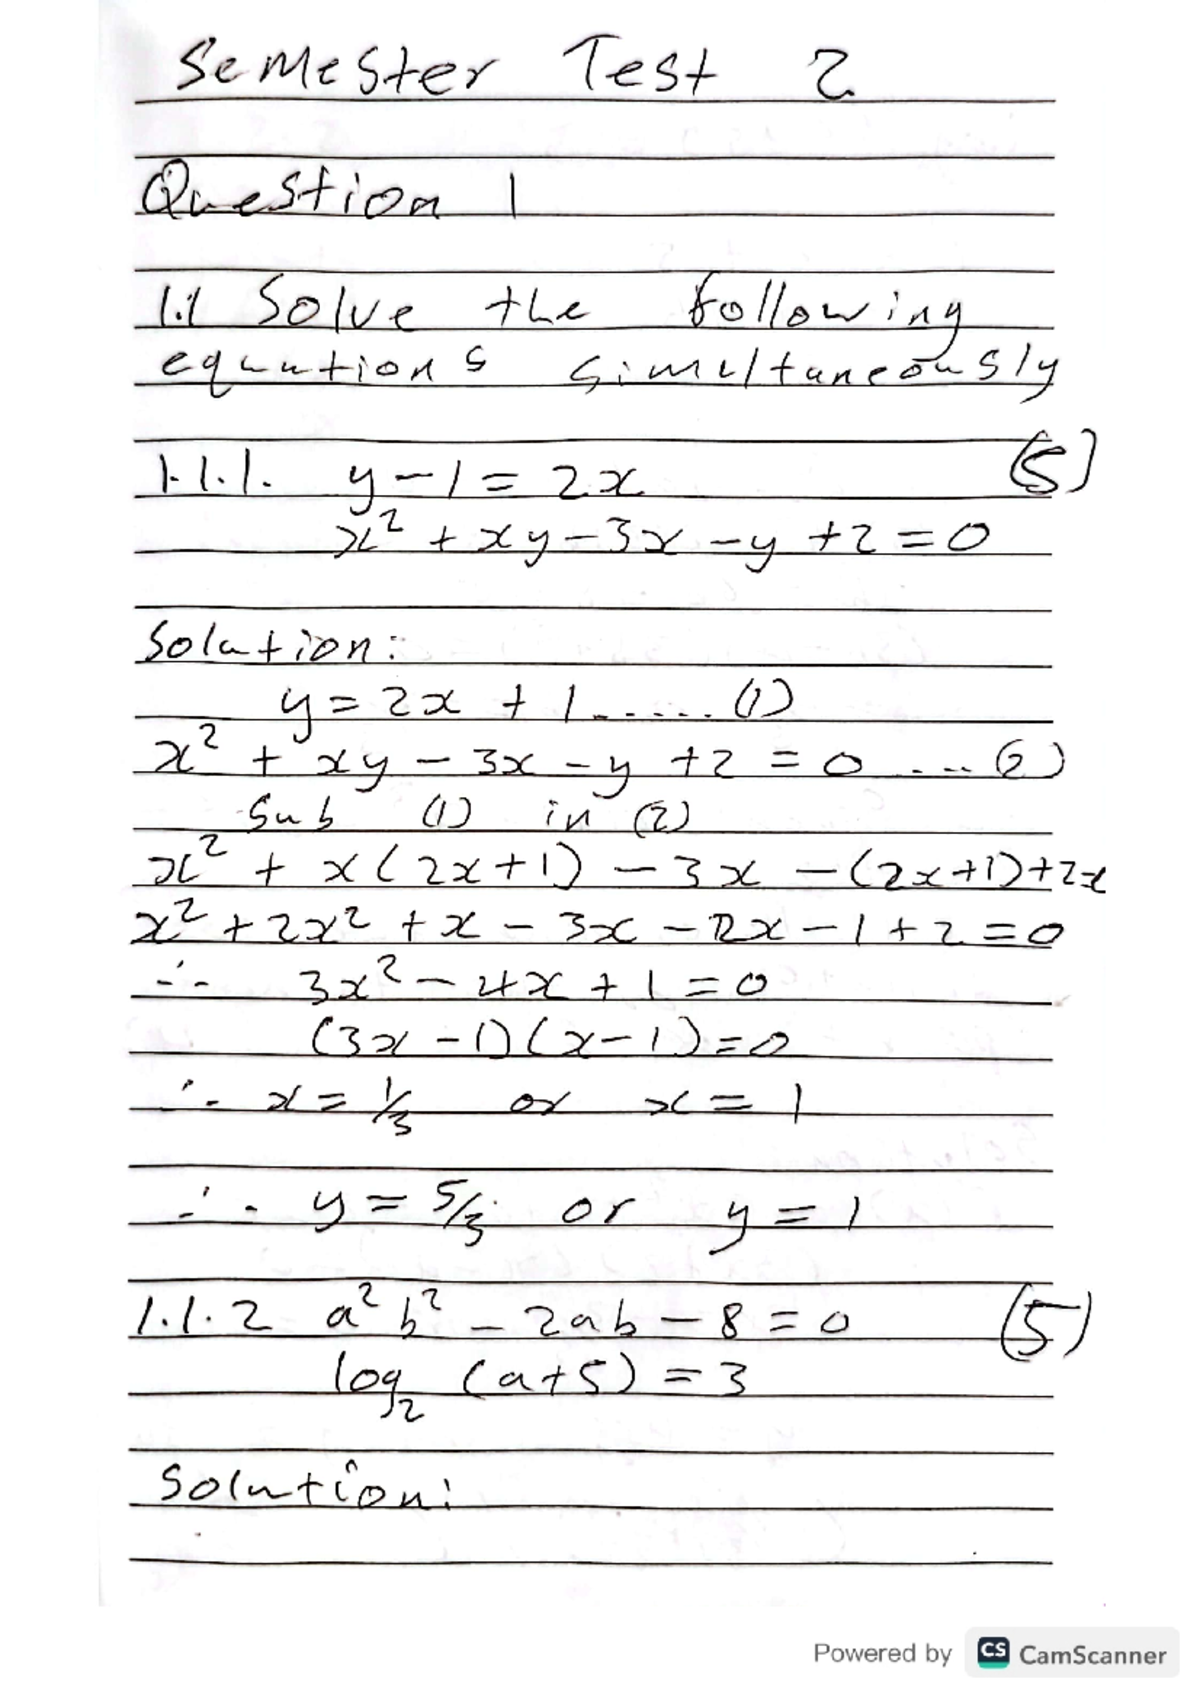 Semester Test 2
Question 1
1.1 Solve the following
equations simultaneously
1.1.1. y-1 = 2x (5)
x² + xy - 3x - y + 2 = 0
Solution:
y = 2x + 1 ...... (1)
x² + xy - 3x - y + 2 = 0 .... (2)
Sub (1) in (2)
x² + x(2x+1) - 3x - (2x+1)+2x
x² + 2x² + x - 3x - 2x - 1 + 2 = 0
∴ 3x² - 4x + 1 = 0
(3x - 1)(x - 1) = 0
∴ x = 1/3 or x = 1
∴ y = 5/3 or y = 1
1.1.2 a²b² - 2ab - 8 = 0 (5)
log₂ (a+5) = 3
Solution:
Powered by CS CamScanner